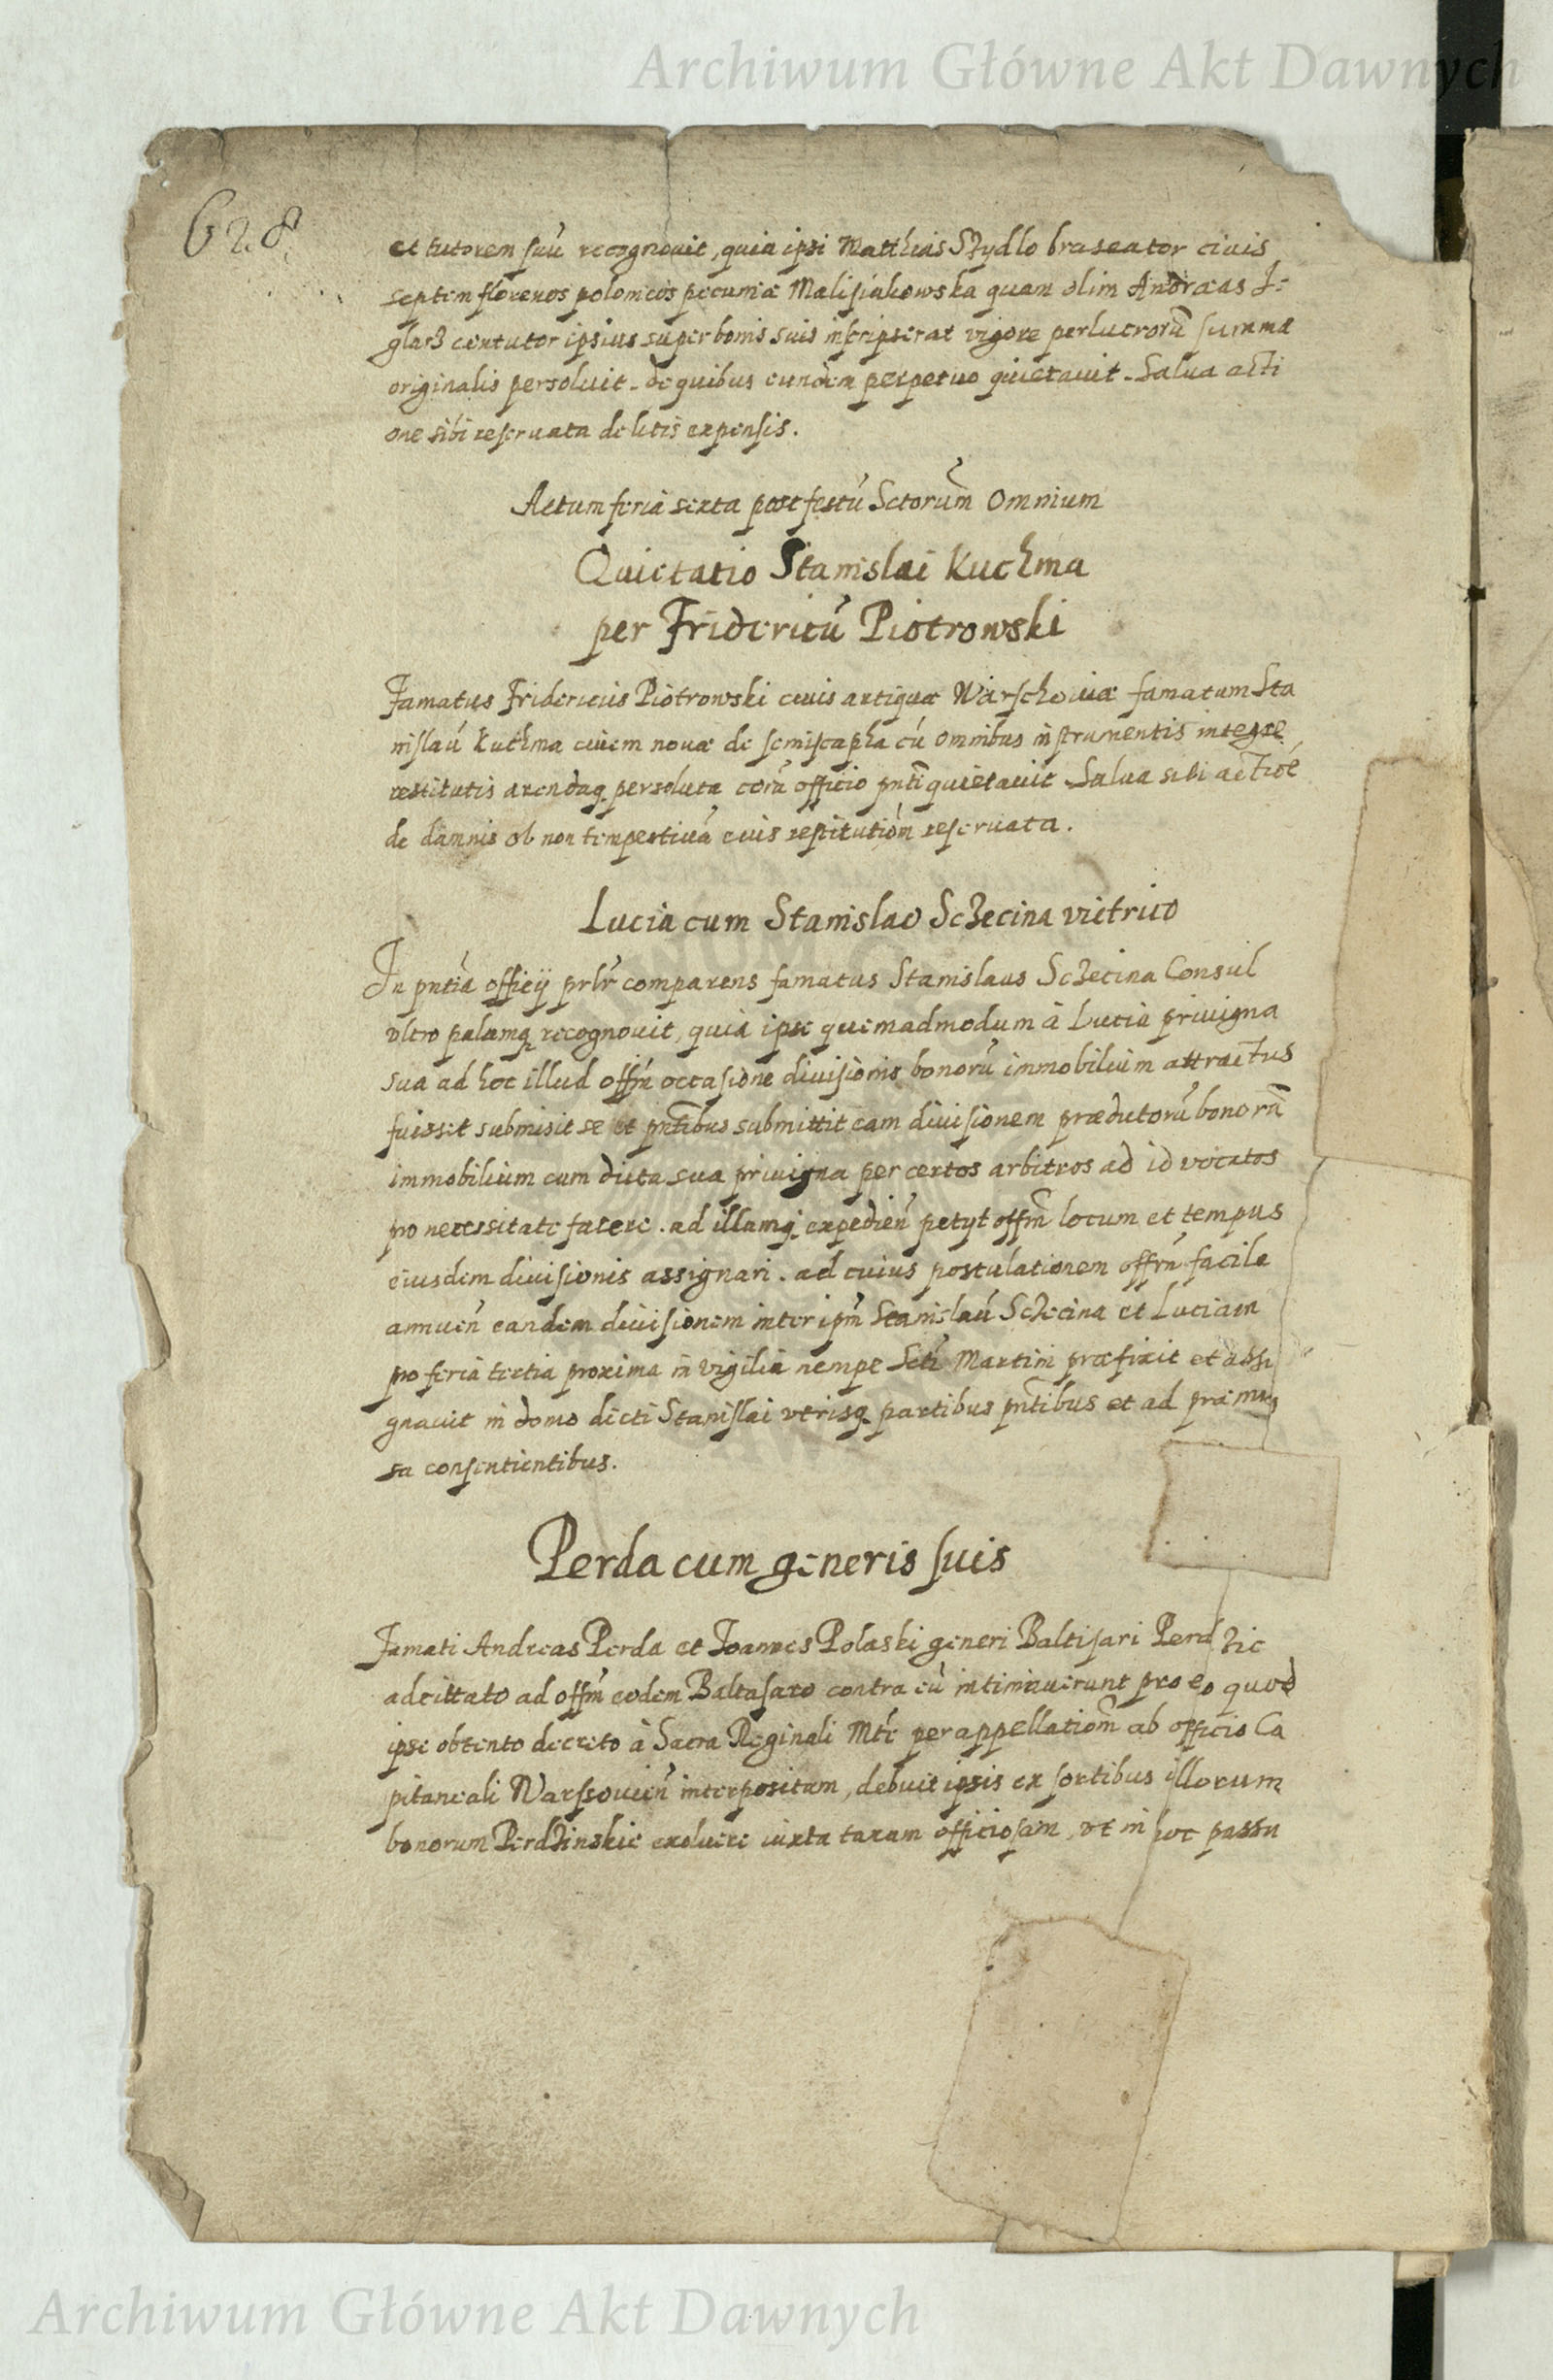 Archiwum Główne Akt Dawnych
628
et tutorem suū recognouit, quia ipsi Matthias Szydlo braseator ciuis
septem florenos polonicos pecuniæ Malisiakowska quam olim Andræas I:
glarz contutor ipsius super bonis suis inscripserat vigore perlucrorū summæ
originalis persoluit. de quibus eundem perpetuo quietauit. Salua acti
one sibi reseruata de litis expensis.
Actum feria sexta post festū Sctorum̄ Omnium
Quietatio Stanislai Kuchma
per Fridericū Piotrowski
Famatus Fridericus Piotrowski ciuis antiquæ Warschouiæ famatum Sta
nislaū Kuchma ciuem nouæ de semiscapha cū omnibus instrumentis integre
restitutis arendaq̨ persoluta corā officio pn̄ti quietauit Salua sibi actioē
de damnis ob non tempestiuā eius restitutiōm reseruata.
Lucia cum Stanislao Sczecina vietrico
In pn̄tia officij pr̄lr comparens famatus Stanislaus Sczecina Consul
vltro palamq̨ recognouit, quia ipse quemadmodum à Lucia priuigna
sua ad hoc illud offm̄ occasione diuisionis bonorū immobilium attractus
fuisset submisit se et pn̄tibus submittit eam diuisionem prædictorū bonorū
immobilium cum dicta sua priuigna per certos arbitros ad id vocatos
pro necessitate facere. ad illamq̨ expedien̄ petyt offm̄ locum et tempus
eiusdem diuisionis assignari. ad cuius postulationem offm̄ facile
annuen̄ eandem diuisionem inter ipm̄ Stanislaū Sczecina et Luciam
pro feria tertia proxima in vigilia nempe Scti Martini præfixit et assi
gnauit in domo dicti Stanislai vtrisq̨ partibus pn̄tibus et ad præmis
sa consentientibus.
Perda cum generis suis
Famati Andreas Perda et Joannes Polaski generi Baltisari Perdzic
adcittato ad offm̄ eodem Baltasaro contra eū intimauerunt pro eo quod
ipse obtento decreto à Sacra Reginali Mtē per appellatiōm ab officio Ca
pitaneali Warssouien̄ interpositam, debuit ipsis ex sortibus illorum
bonorum Perdzinskie exoluere iuxta taxam officiosam, vt in hoc passu
Archiwum Główne Akt Dawnych